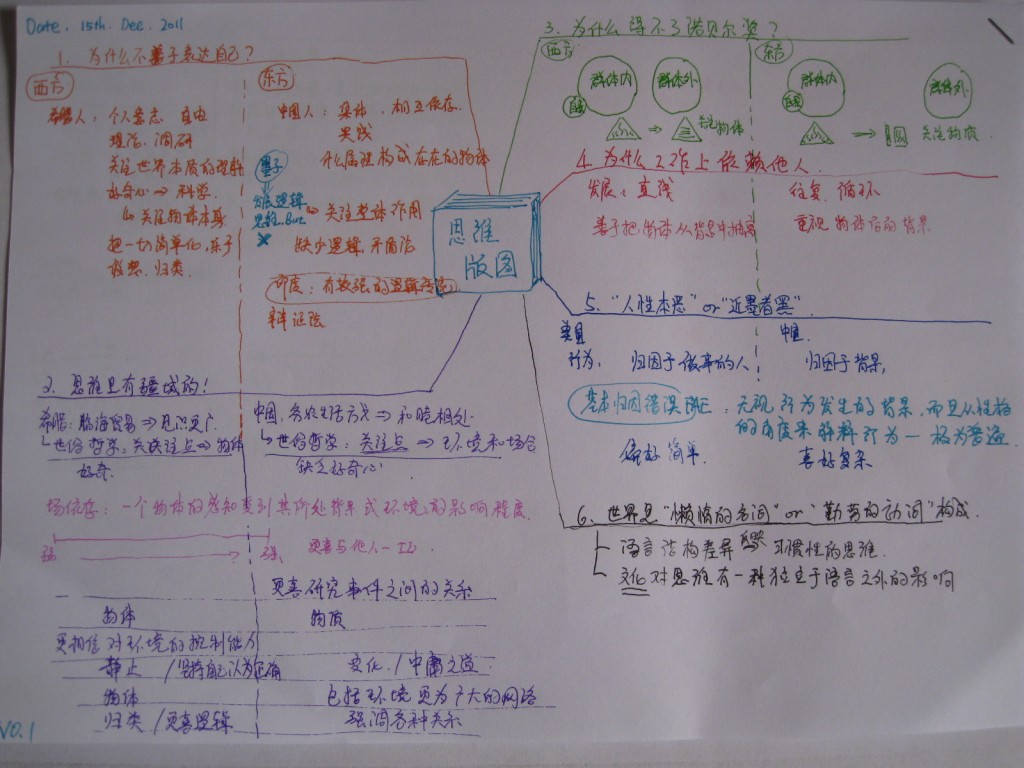 Date. 15th. Dec. 2011
1. 为什么不善于表达自己?
西方
希腊人: 个人意志 自由
理论, 调研
关注世界本质的理解
好奇心 ⇒ 科学.
↳ 关注物体本身
把一切简单化, 乐于
假想. 归类.
东方
中国人: 集体. 相互依存.
实践
什么属性构成存在的物体
墨子
发展逻辑
思维. But
关注整体作用
×
缺少逻辑, 矛盾法
印度: 有较强的逻辑
辩证法
思维
版图
2. 思维是有疆域的!
希腊: 临海贸易 ⇒ 见识更广
↳ 世俗哲学: 关注点 ⇒ 物体
好奇.
中国, 务农生活方式 ⇒ 和睦相处
↳ 世俗哲学: 关注点 ⇒ 环境和场合
缺乏好奇心
场依存: 一个物体的感知受到其所处背景或环境的影响程度.
弱
强.
更喜与他人一工.
更喜研究事件之间的关系
物体
物质
更相信对环境的控制能力
静止 / 坚持自己认为正确
变化. / 中庸之道.
物体
包括环境更为广大的网络
归类 / 更喜逻辑
强调各种关系
V0.1
3. 为什么得不了诺贝尔奖?
西方
群体内
自我
群体外
→
关注物体
东方
群体内
自我
群体外
→
关注物质.
4. 为什么工作上依赖他人.
发展: 直线
往复. 循环
善于把物体从背景中抽离
重视物体后的背景
5. "人性本恶" or "近墨者黑"
美国
中国.
行为: 归因于做事的人
归因于背景,
基本归因错误: 无视行为发生的背景, 而且从性格
的角度来解释行为 — 极为普遍
偏好简单.
喜好复杂
6. 世界是"懒惰的名词" or "勤劳的动词" 构成.
语言结构差异 习惯性的思维.
文化对思维有一种独立于语言之外的影响